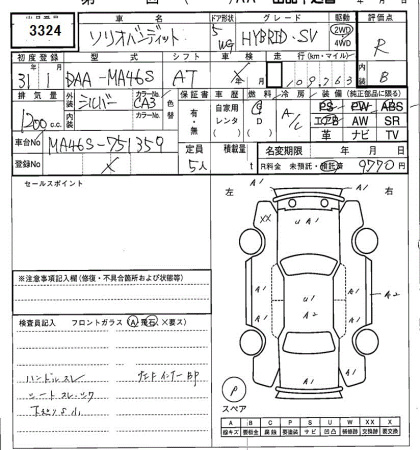 車名 ドア形状 グレード 駆動 評価点
3324 ソリオバンディット 5 WG HYBRID・SV 2WD 4WD R
初度登録 型式 シフト 車検 走行(km・マイル) 内装
31年 1月 DAA-MA46S AT 109,763 B
排気量 外装 カラーNo. 色替 保証書 車歴 燃料 冷房 装備(純正部品に限る)
1200cc シルバー CA3 有・無 自家用 レンタ G D A/C PS PW ABS
内装 カラーNo. エアB AW SR
革 ナビ TV
車台No. MA46S-751359 定員 積載量 名変期限 年 月 日
登録No. × 5人 t R料金 未預託・預託済 9770円
セールスポイント 左 右
XX A1 A1
A1 U1 A1
A1 U1 A1 A2
A1 A1
※注意事項記入欄(修復・不具合箇所および状態等)
検査員記入 フロントガラス(A 飛石 ×要ス)
ハンドルスレ
シートスレ
下廻りS小
P
スペア
A B C P S U W X XX ×
線キズ 要板金 腐蝕 要塗装 サビ 凹凸 補修跡 交換跡 要交換